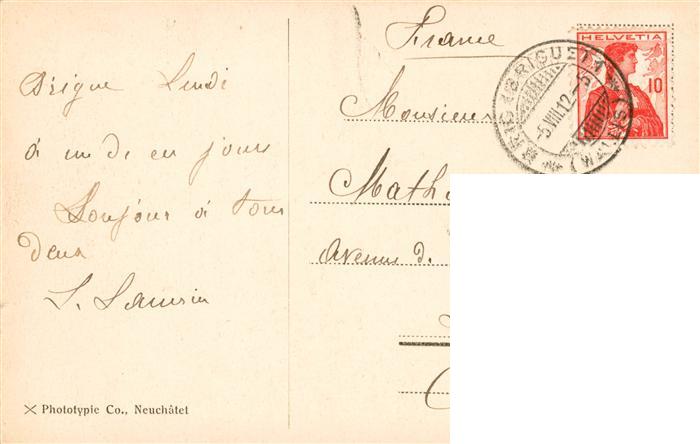 Brigue Lundi
à un de ces jours
Bonjour à tous
deux
Phototypie Co., Neuchâtel
France
Monsieur
Math
Avenue d.
HELVETIA
10
BRIGUE
5.VIII.12
(WALLIS)